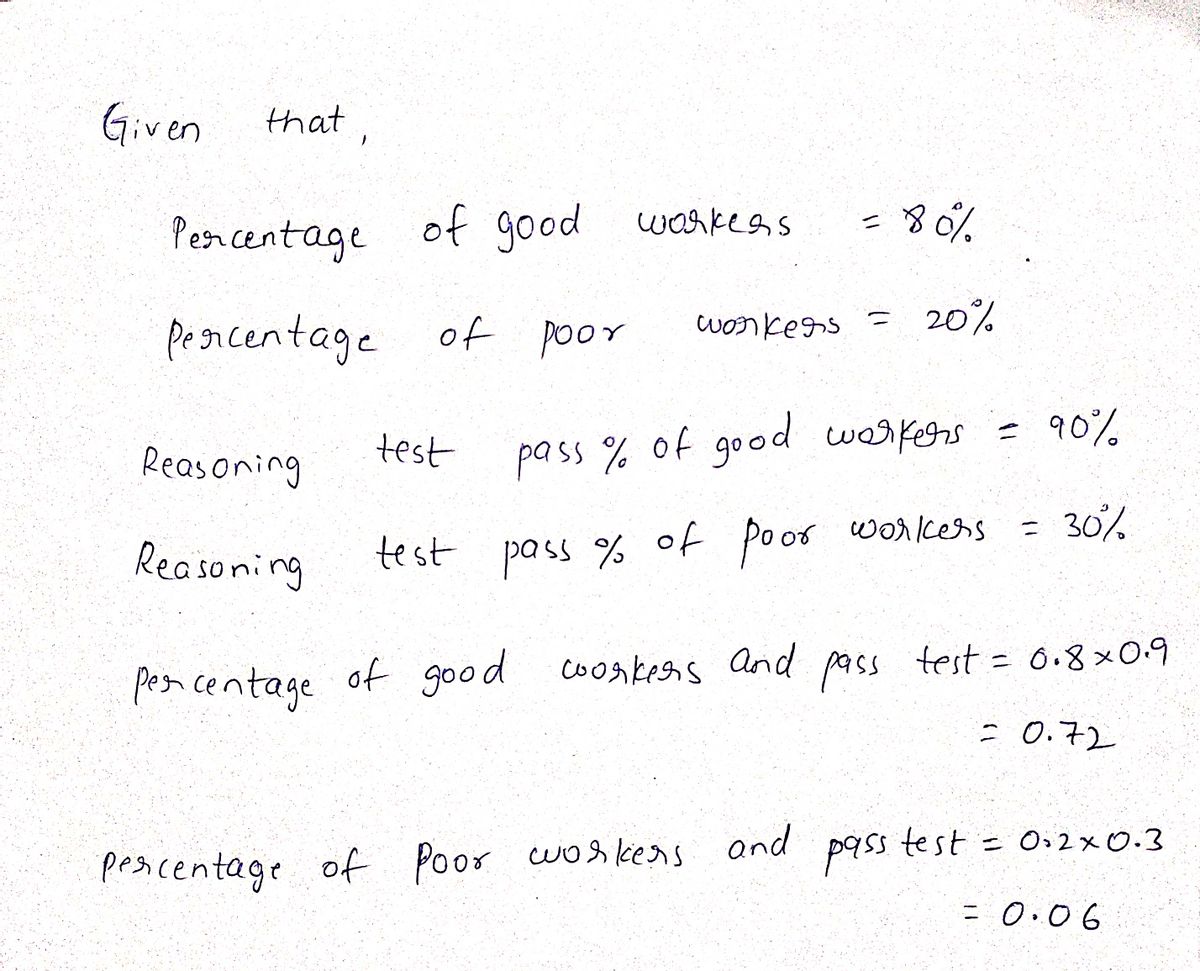 Given that,
Percentage of good workers = 80%
Percentage of poor workers = 20%
Reasoning test pass % of good workers = 90%
Reasoning test pass % of poor workers = 30%
percentage of good workers and pass test = 0.8 × 0.9
= 0.72
percentage of Poor workers and pass test = 0.2 × 0.3
= 0.06